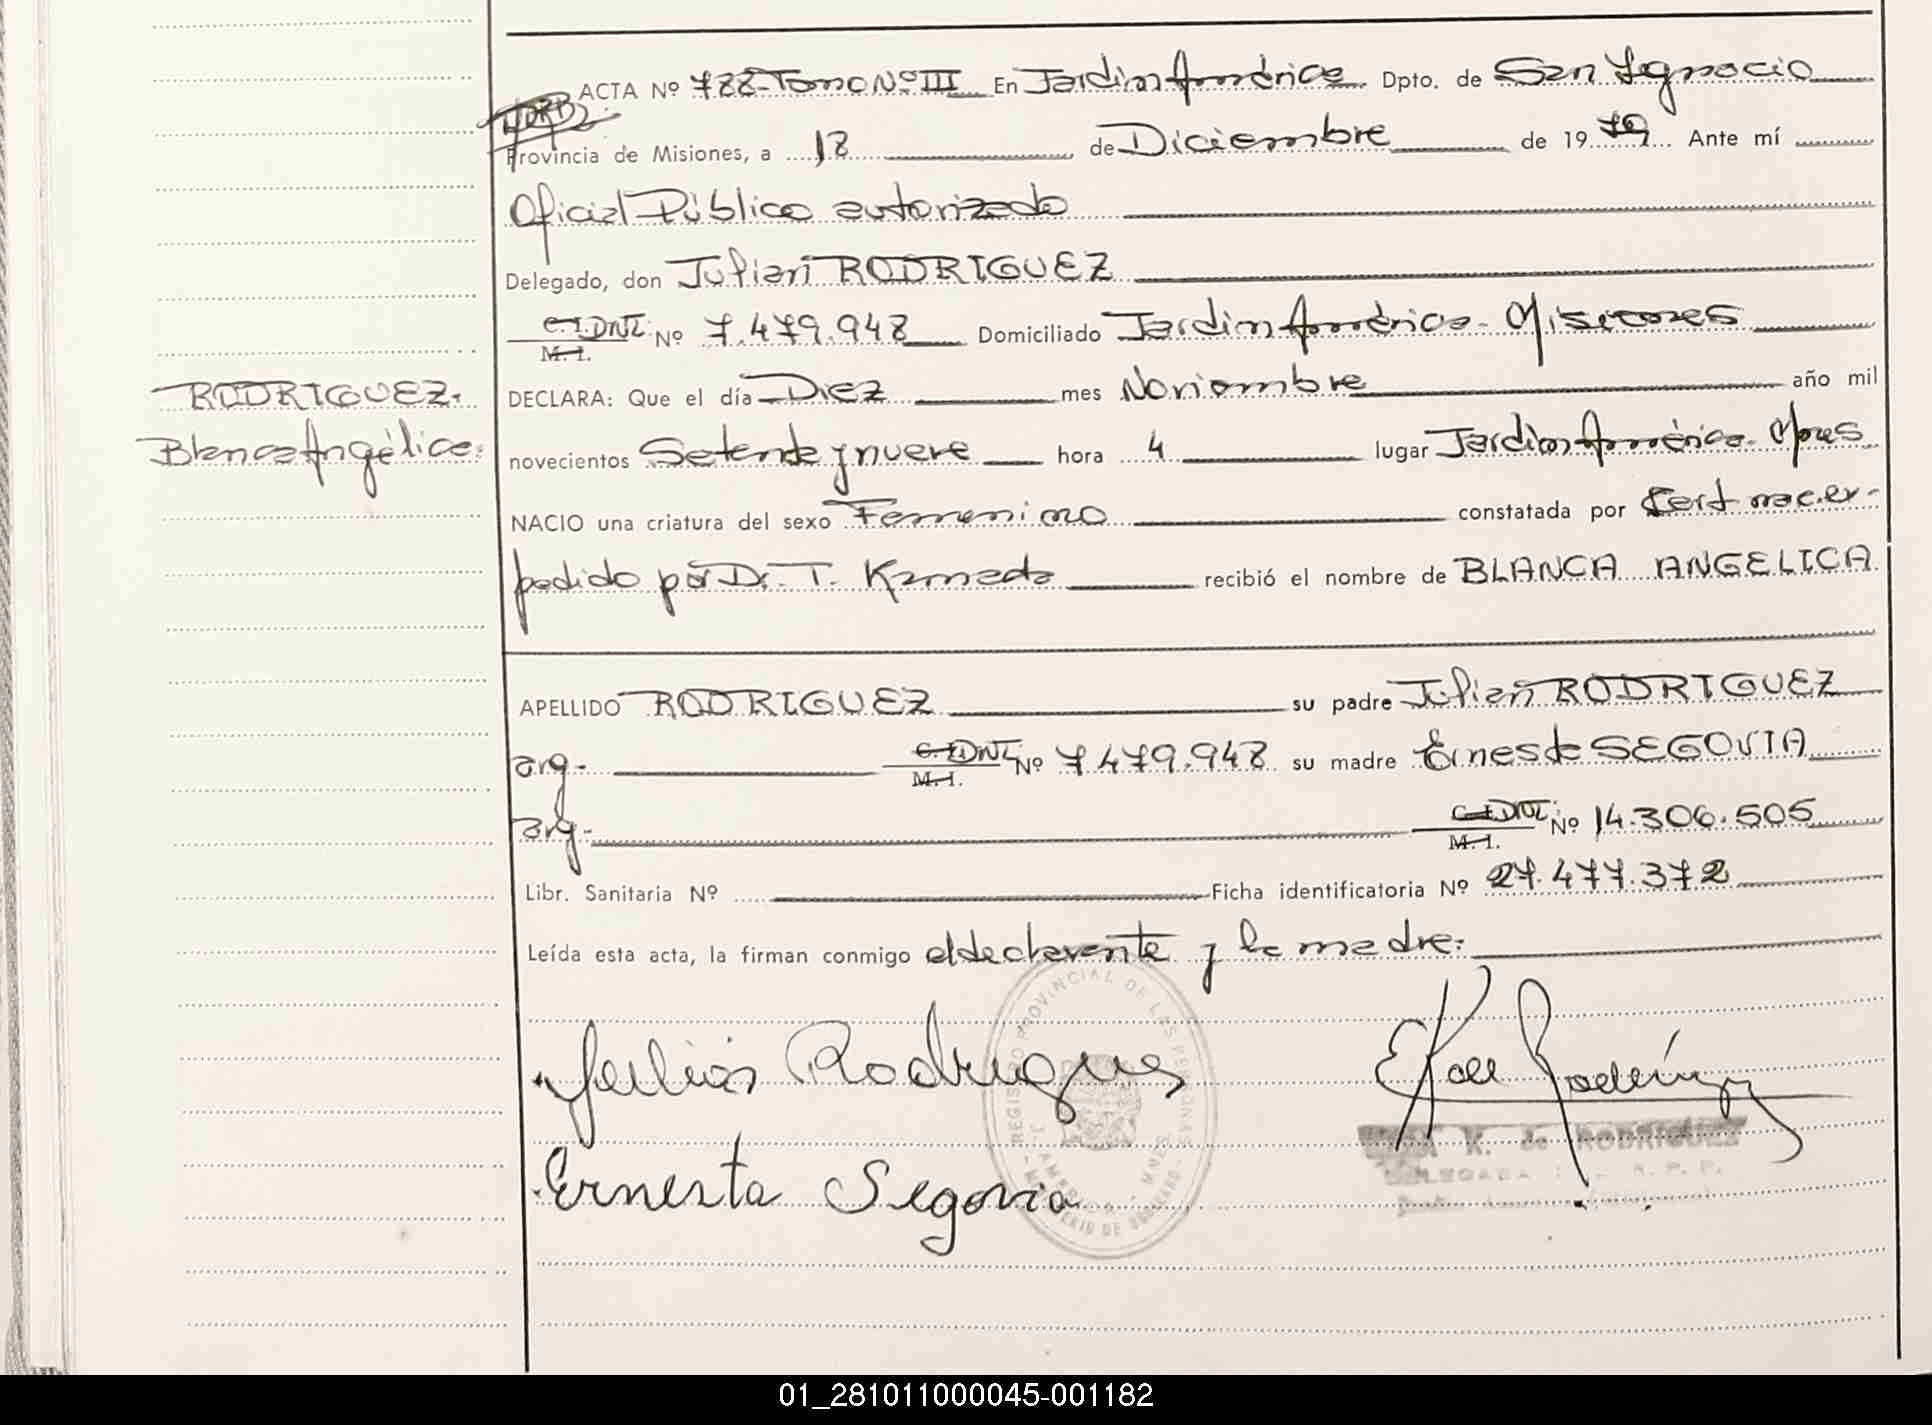 ACTA Nº 788-Tomo Nº III En Jardín América Dpto. de San Ignacio
Provincia de Misiones, a 18 de Diciembre de 1979 Ante mí
Oficial Público autorizado
Delegado, don Julian RODRIGUEZ
C.I. DNI. Nº 7.479.948 Domiciliado Jardín América - Misiones
M. I.
RODRIGUEZ. DECLARA: Que el día Diez mes Noviembre año mil
Blanca Angélica: novecientos Setenta y nueve hora 4 lugar Jardín América - Mnes
NACIO una criatura del sexo Femenino constatada por Cert nac. ex-
pedido por Dr. T. Kameda recibió el nombre de BLANCA ANGELICA
APELLIDO RODRIGUEZ su padre Julian RODRIGUEZ
arg- C.I. DNI. Nº 7.479.948 su madre Ernesta SEGOVIA
M. I.
arg- C.I. DNI. Nº 14.306.505
M. I.
Libr. Sanitaria Nº Ficha identificatoria Nº 27.477.372
Leída esta acta, la firman conmigo el declarante y la madre:
REGISTRO PROVINCIAL DE LAS PERSONAS
Julian Rodrigues
K. de RODRIGUEZ
DELEGADA R. P. P.
Ernesta Segovia
MINISTERIO DE GOBIERNO
01_281011000045-001182